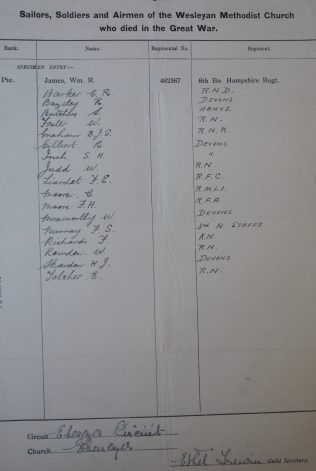 Sailors, Soldiers and Airmen of the Wesleyan Methodist Church
who died in the Great War.
Rank. Name. Regimental No. Regiment.
SPECIMEN ENTRY:—
Pte. James, Wm. R. 482367 6th Bn. Hampshire Regt.
Barker C. R. R.N.D.
Bazley R. DEVONS.
Butchers S. HANTS.
Foale W. R.N.
Graham B. J. S. R.N.R.
Gilbert R. DEVONS
Inch S. H. "
Judd W. R.N.
Liardet F. E. R.F.C.
Moore C. R.M.L.I.
Moore F. H. R.F.A.
W. DEVONS
Murray F. S. 3RD N. STAFFS
Richards F. R.N.
Rowden W. R.N.
Skardon H. J. DEVONS
Tolcher E. R.N.
Circuit Ebenezer Circuit
Church Ebenezer
Ethel Guild Secretary.